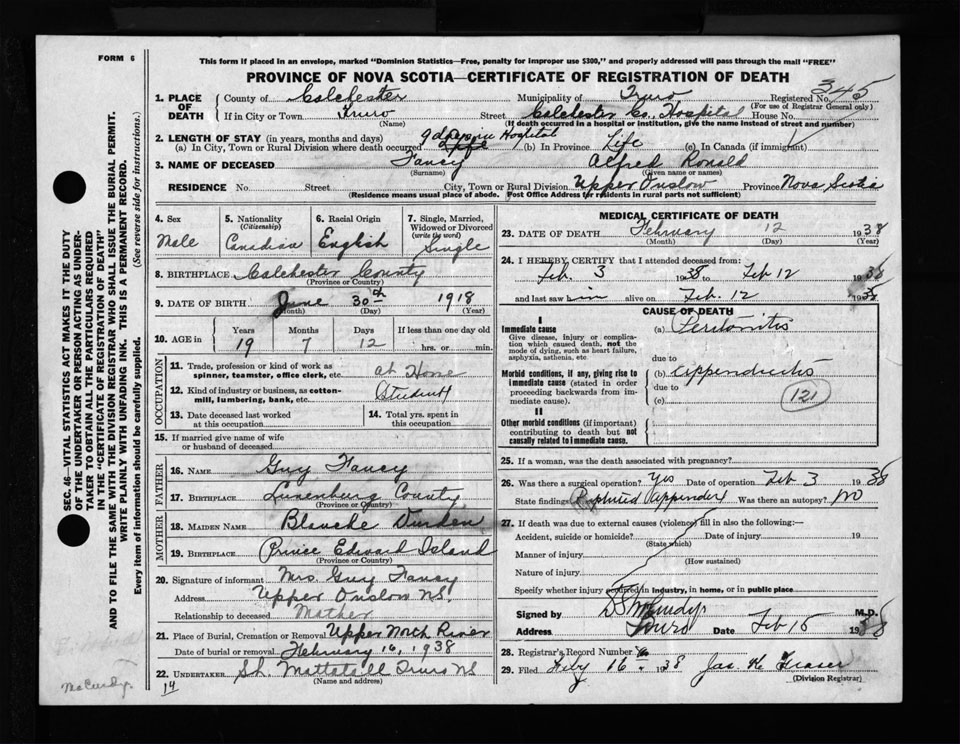 FORM 6
This form if placed in an envelope, marked "Dominion Statistics—Free, penalty for improper use $300," and properly addressed will pass through the mail "FREE"
PROVINCE OF NOVA SCOTIA—CERTIFICATE OF REGISTRATION OF DEATH
345
1. PLACE OF DEATH County of Colchester Municipality of Truro Registered No.
(For use of Registrar General only)
If in City or Town Truro Street Colchester Co. Hospital House No.
(Name) (If death occurred in a hospital or institution, give the name instead of street and number)
2. LENGTH OF STAY (in years, months and days)
(a) In City, Town or Rural Division where death occurred 9 days in Hospital (b) In Province Life (c) In Canada (if immigrant)
3. NAME OF DECEASED Fancy Alfred Ronald
(Surname) (Given name or names)
RESIDENCE No. Street City, Town or Rural Division Upper Onslow Province Nova Scotia
(Residence means usual place of abode. Post Office Address for residents in rural parts not sufficient)
4. Sex Male
5. Nationality (Citizenship) Canadian
6. Racial Origin English
7. Single, Married, Widowed or Divorced (write the word) Single
8. BIRTHPLACE Colchester County
(Province or Country)
9. DATE OF BIRTH June 30th 1918
(Month) (Day) (Year)
10. AGE in Years Months Days If less than one day old
19 7 12 hrs. or min.
OCCUPATION
11. Trade, profession or kind of work as spinner, teamster, office clerk, etc. at Home
12. Kind of industry or business, as cotton-mill, lumbering, bank, etc. Student
13. Date deceased last worked at this occupation
14. Total yrs. spent in this occupation
15. If married give name of wife or husband of deceased
FATHER
16. NAME Guy Fancy
17. BIRTHPLACE Lunenburg County
(Province or Country)
MOTHER
18. MAIDEN NAME Blanche Durden
19. BIRTHPLACE Prince Edward Island
(Province or Country)
20. Signature of informant Mrs. Guy Fancy
Address Upper Onslow N.S.
Relationship to deceased Mother
21. Place of Burial, Cremation or Removal Upper North River
Date of burial or removal February 16, 1938
22. UNDERTAKER Mattatall Truro N.S.
(Name and address)
14
MEDICAL CERTIFICATE OF DEATH
23. DATE OF DEATH February 12 1938
(Month) (Day) (Year)
24. I HEREBY CERTIFY that I attended deceased from:
Feb. 3 1938 to Feb 12 1938
and last saw him alive on Feb. 12 1938
CAUSE OF DEATH
I
Immediate cause
Give disease, injury or complication which caused death, not the mode of dying, such as heart failure, asphyxia, asthenia, etc
(a) Peritonitis
due to
Morbid conditions, if any, giving rise to immediate cause (stated in order proceeding backwards from immediate cause)
(b) appendicitis
due to
(c)
121
II
Other morbid conditions (if important) contributing to death but not causally related to immediate cause.
25. If a woman, was the death associated with pregnancy?
26. Was there a surgical operation? Yes Date of operation Feb 3 1938
State findings Ruptured appendix Was there an autopsy? No
27. If death was due to external causes (violence) fill in also the following:—
Accident, suicide or homicide? Date of injury 19
(State which)
Manner of injury
(How sustained)
Nature of injury
Specify whether injury occurred in industry, in home, or in public place
Signed by M.D.
Address Truro Date Feb 15 1938
28. Registrar's Record Number
29. Filed Feby 16 1938 Jas. K. Fraser
(Division Registrar)
SEC. 46—VITAL STATISTICS ACT MAKES IT THE DUTY
OF THE UNDERTAKER OR PERSON ACTING AS UNDER-
TAKER TO OBTAIN ALL THE PARTICULARS REQUIRED
IN THE "CERTIFICATE OF REGISTRATION OF DEATH"
AND TO FILE THE SAME WITH THE DIVISION REGISTRAR WHO SHALL ISSUE THE BURIAL PERMIT.
WRITE PLAINLY WITH UNFADING INK. THIS IS A PERMANENT RECORD.
Every item of information should be carefully supplied. (See reverse side for instructions.)
McCurdy.